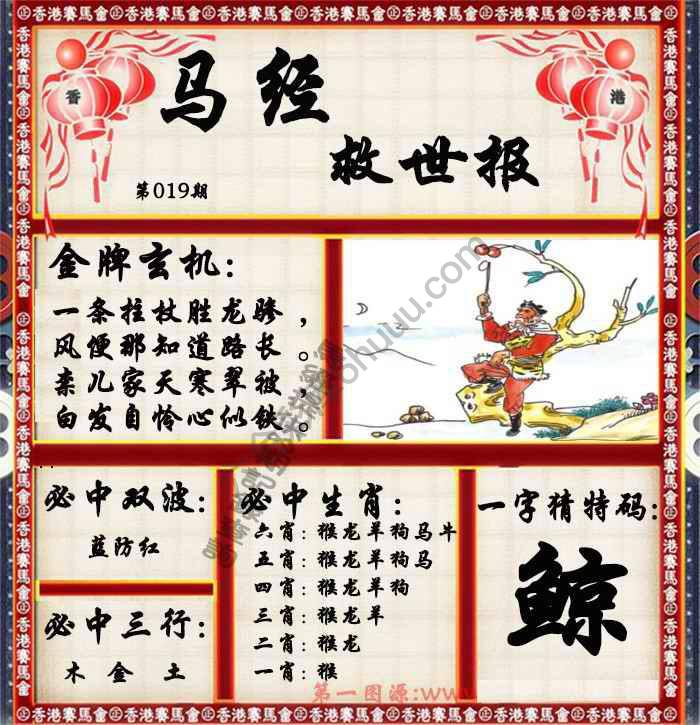 香港賽馬會
香
港
马经
救世报
第019期
金牌玄机:
一条拄杖胜龙骖，
风便那知道路长。
亲儿家天寒翠被，
白发自怜心似铁。
必中双波:
蓝防红
必中三行:
木 金 土
必中生肖:
六肖: 猴龙羊狗马牛
五肖: 猴龙羊狗马
四肖: 猴龙羊狗
三肖: 猴龙羊
二肖: 猴龙
一肖: 猴
一字猜特码:
鲸
第一图源:www